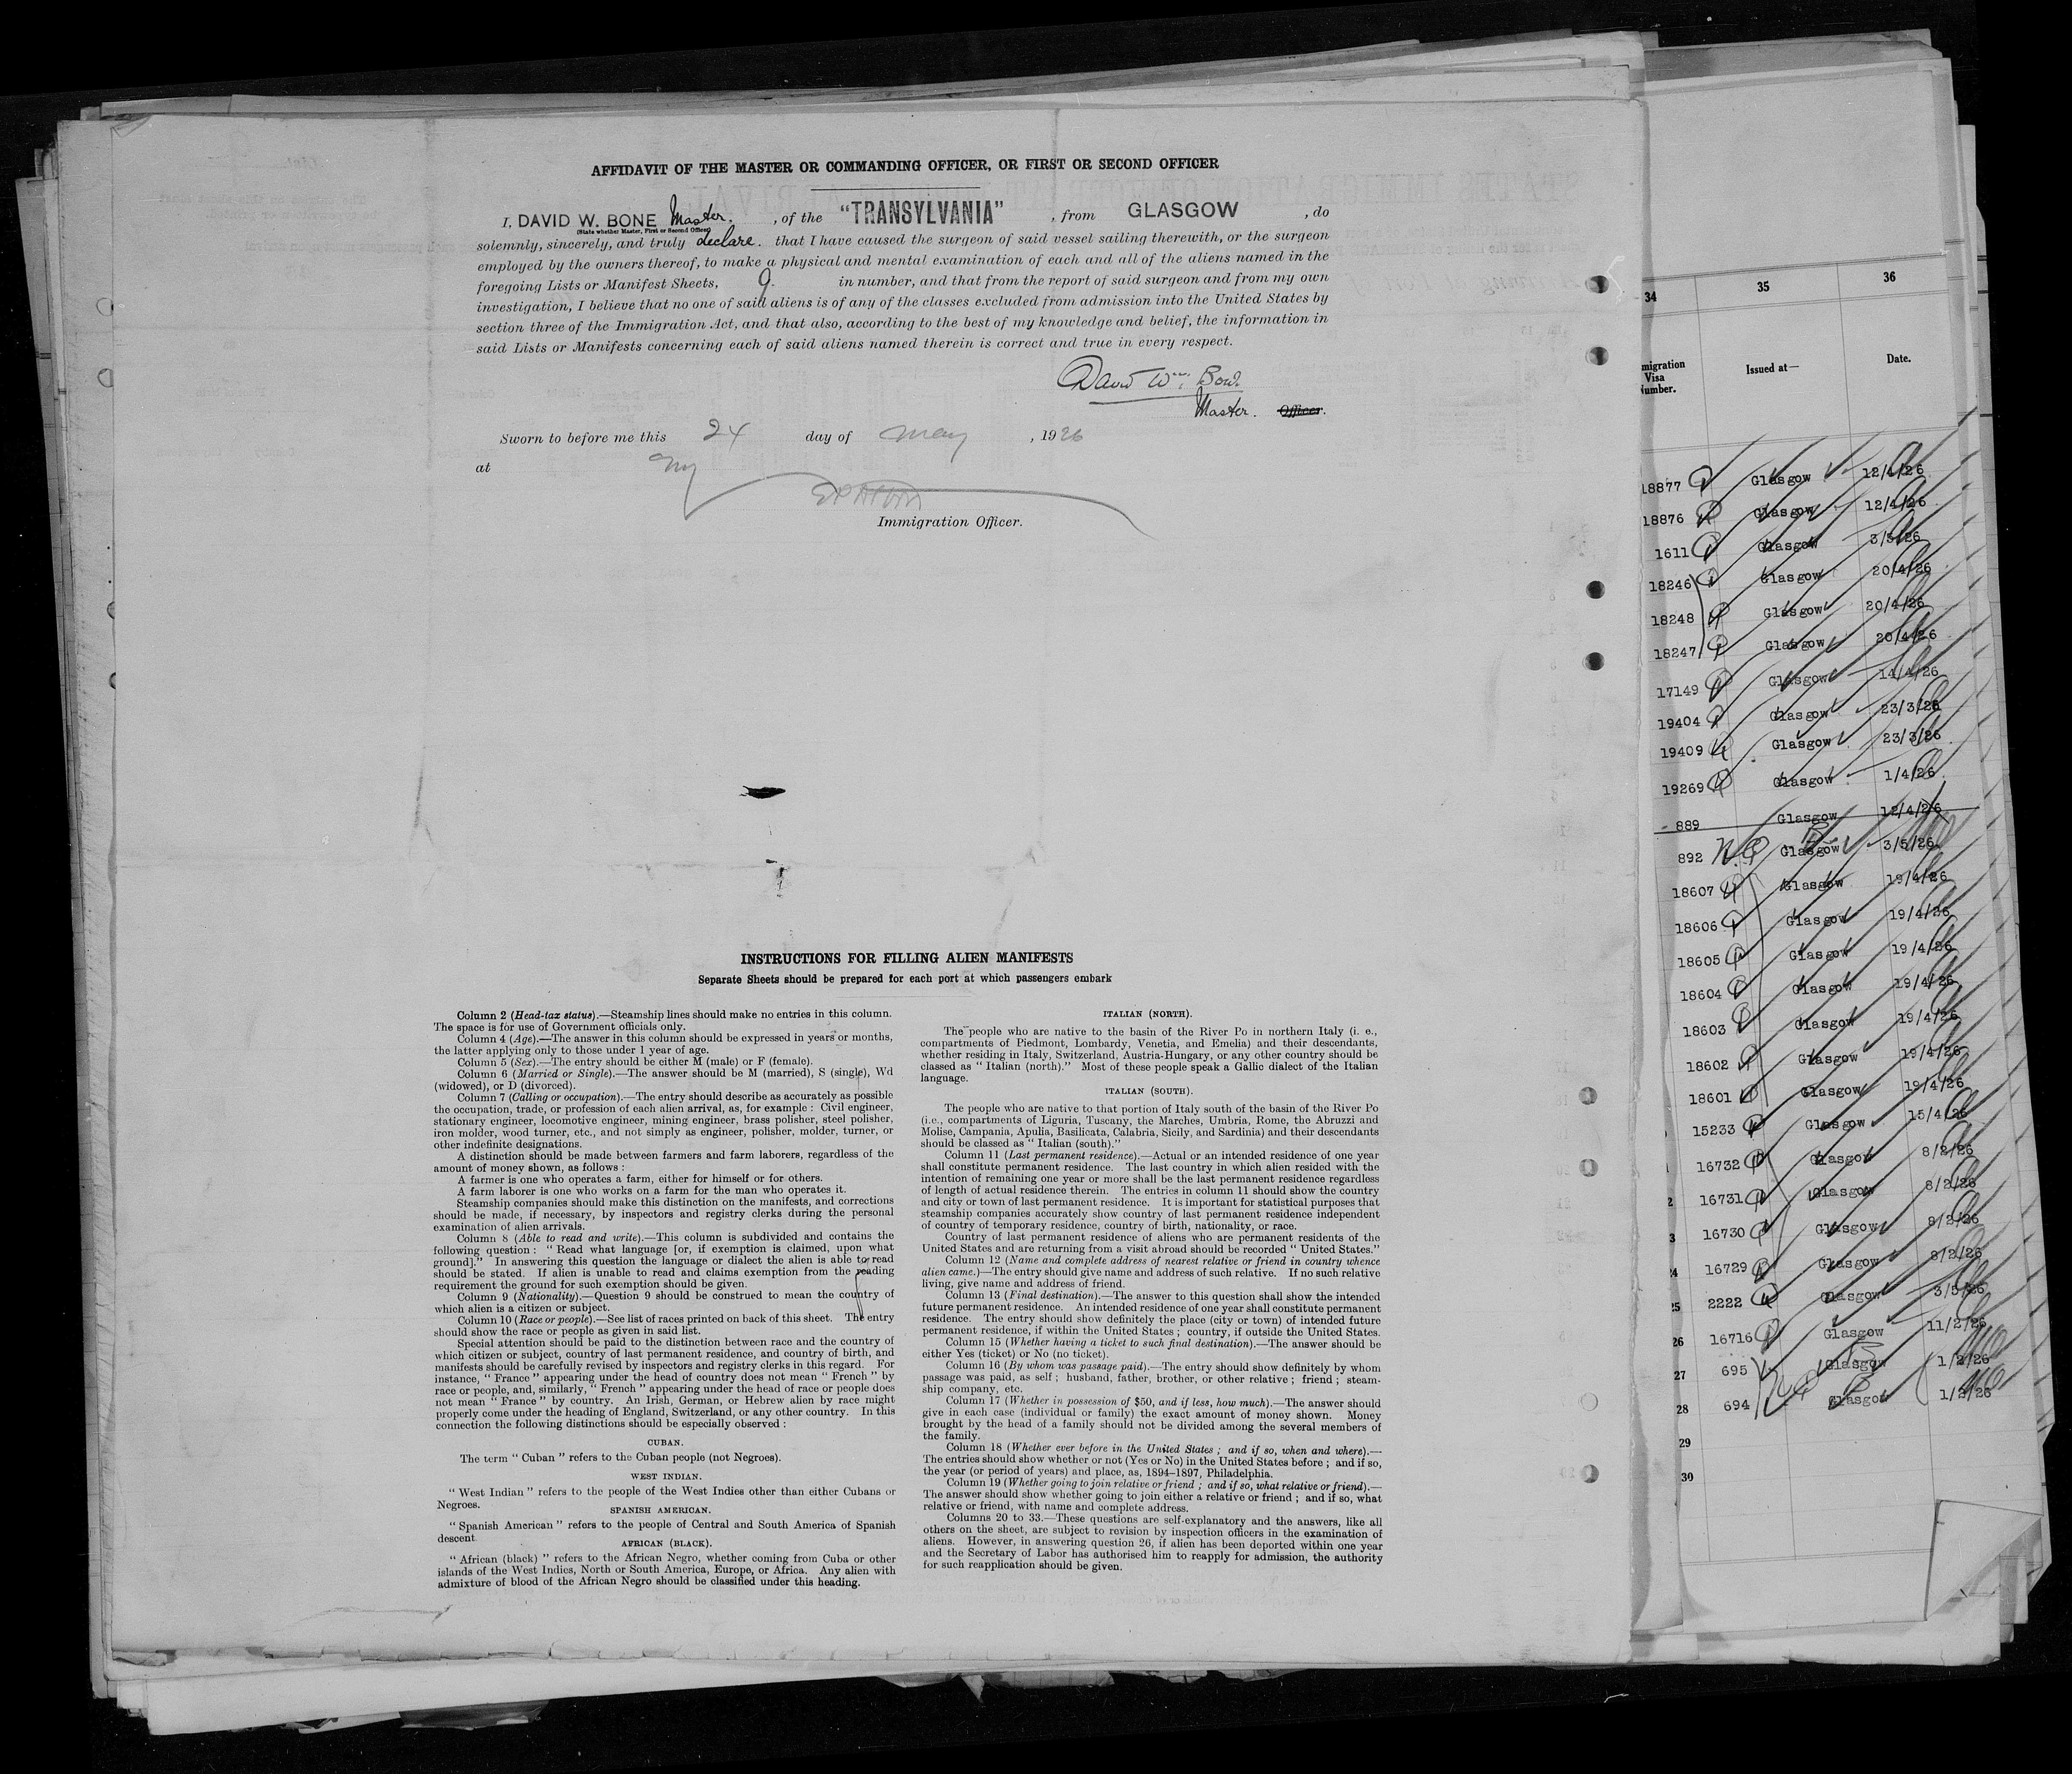 AFFIDAVIT OF THE MASTER OR COMMANDING OFFICER, OR FIRST OR SECOND OFFICER
I, DAVID W. BONE Master. , of the "TRANSYLVANIA" , from GLASGOW , do
(State whether Master, First or Second Officer)
solemnly, sincerely, and truly declare. that I have caused the surgeon of said vessel sailing therewith, or the surgeon
employed by the owners thereof, to make a physical and mental examination of each and all of the aliens named in the
foregoing Lists or Manifest Sheets, 9. in number, and that from the report of said surgeon and from my own
investigation, I believe that no one of said aliens is of any of the classes excluded from admission into the United States by
section three of the Immigration Act, and that also, according to the best of my knowledge and belief, the information in
said Lists or Manifests concerning each of said aliens named therein is correct and true in every respect.
David Wm. Bone
Master. Officer.
Sworn to before me this 24 day of May , 1926
at NY
Immigration Officer.
INSTRUCTIONS FOR FILLING ALIEN MANIFESTS
Separate Sheets should be prepared for each port at which passengers embark
Column 2 (Head-tax status).—Steamship lines should make no entries in this column.
The space is for use of Government officials only.
Column 4 (Age).—The answer in this column should be expressed in years or months,
the latter applying only to those under 1 year of age.
Column 5 (Sex).—The entry should be either M (male) or F (female).
Column 6 (Married or Single).—The answer should be M (married), S (single), Wd
(widowed), or D (divorced).
Column 7 (Calling or occupation).—The entry should describe as accurately as possible
the occupation, trade, or profession of each alien arrival, as, for example : Civil engineer,
stationary engineer, locomotive engineer, mining engineer, brass polisher, steel polisher,
iron molder, wood turner, etc., and not simply as engineer, polisher, molder, turner, or
other indefinite designations.
A distinction should be made between farmers and farm laborers, regardless of the
amount of money shown, as follows :
A farmer is one who operates a farm, either for himself or for others.
A farm laborer is one who works on a farm for the man who operates it.
Steamship companies should make this distinction on the manifests, and corrections
should be made, if necessary, by inspectors and registry clerks during the personal
examination of alien arrivals.
Column 8 (Able to read and write).—This column is subdivided and contains the
following question : " Read what language [or, if exemption is claimed, upon what
ground]." In answering this question the language or dialect the alien is able to read
should be stated. If alien is unable to read and claims exemption from the reading
requirement the ground for such exemption should be given.
Column 9 (Nationality).—Question 9 should be construed to mean the country of
which alien is a citizen or subject.
Column 10 (Race or people).—See list of races printed on back of this sheet. The entry
should show the race or people as given in said list.
Special attention should be paid to the distinction between race and the country of
which citizen or subject, country of last permanent residence, and country of birth, and
manifests should be carefully revised by inspectors and registry clerks in this regard. For
instance, " France " appearing under the head of country does not mean " French " by
race or people, and, similarly, " French " appearing under the head of race or people does
not mean " France " by country. An Irish, German, or Hebrew alien by race might
properly come under the heading of England, Switzerland, or any other country. In this
connection the following distinctions should be especially observed :
CUBAN.
The term " Cuban " refers to the Cuban people (not Negroes).
WEST INDIAN.
" West Indian " refers to the people of the West Indies other than either Cubans or
Negroes.
SPANISH AMERICAN.
" Spanish American " refers to the people of Central and South America of Spanish
descent.
AFRICAN (BLACK).
" African (black) " refers to the African Negro, whether coming from Cuba or other
islands of the West Indies, North or South America, Europe, or Africa. Any alien with
admixture of blood of the African Negro should be classified under this heading.
ITALIAN (NORTH).
The people who are native to the basin of the River Po in northern Italy (i. e.,
compartments of Piedmont, Lombardy, Venetia, and Emelia) and their descendants,
whether residing in Italy, Switzerland, Austria-Hungary, or any other country should be
classed as " Italian (north)." Most of these people speak a Gallic dialect of the Italian
language.
ITALIAN (SOUTH).
The people who are native to that portion of Italy south of the basin of the River Po
(i.e., compartments of Liguria, Tuscany, the Marches, Umbria, Rome, the Abruzzi and
Molise, Campania, Apulia, Basilicata, Calabria, Sicily, and Sardinia) and their descendants
should be classed as " Italian (south)."
Column 11 (Last permanent residence).—Actual or an intended residence of one year
shall constitute permanent residence. The last country in which alien resided with the
intention of remaining one year or more shall be the last permanent residence regardless
of length of actual residence therein. The entries in column 11 should show the country
and city or town of last permanent residence. It is important for statistical purposes that
steamship companies accurately show country of last permanent residence independent
of country of temporary residence, country of birth, nationality, or race.
Country of last permanent residence of aliens who are permanent residents of the
United States and are returning from a visit abroad should be recorded " United States."
Column 12 (Name and complete address of nearest relative or friend in country whence
alien came.)—The entry should give name and address of such relative. If no such relative
living, give name and address of friend.
Column 13 (Final destination).—The answer to this question shall show the intended
future permanent residence. An intended residence of one year shall constitute permanent
residence. The entry should show definitely the place (city or town) of intended future
permanent residence, if within the United States ; country, if outside the United States.
Column 15 (Whether having a ticket to such final destination).—The answer should be
either Yes (ticket) or No (no ticket).
Column 16 (By whom was passage paid).—The entry should show definitely by whom
passage was paid, as self ; husband, father, brother, or other relative ; friend ; steam-
ship company, etc.
Column 17 (Whether in possession of $50, and if less, how much).—The answer should
give in each case (individual or family) the exact amount of money shown. Money
brought by the head of a family should not be divided among the several members of
the family.
Column 18 (Whether ever before in the United States ; and if so, when and where).—
The entries should show whether or not (Yes or No) in the United States before ; and if so,
the year (or period of years) and place, as, 1894–1897, Philadelphia.
Column 19 (Whether going to join relative or friend ; and if so, what relative or friend).—
The answer should show whether going to join either a relative or friend ; and if so, what
relative or friend, with name and complete address.
Columns 20 to 33.—These questions are self-explanatory and the answers, like all
others on the sheet, are subject to revision by inspection officers in the examination of
aliens. However, in answering question 26, if alien has been deported within one year
and the Secretary of Labor has authorised him to reapply for admission, the authority
for such reapplication should be given.
34 35 36
migration
Visa
Number.
Issued at—
Date.
18877 Glasgow 12/4/26
18876 Glasgow 12/4/26
1611 Glasgow 3/5/26
18246 Glasgow 20/4/26
18248 Glasgow 20/4/26
18247 Glasgow 20/4/26
17149 Glasgow 14/4/26
19404 Glasgow 23/3/26
19409 Glasgow 23/3/26
19269 Glasgow 1/4/26
889 Glasgow 12/4/26
892 Glasgow 3/5/26
18607 Glasgow 19/4/26
18606 Glasgow 19/4/26
18605 Glasgow 19/4/26
18604 Glasgow 19/4/26
18603 Glasgow 19/4/26
18602 Glasgow 19/4/26
18601 Glasgow 19/4/26
15233 Glasgow 15/4/26
16732 Glasgow 8/2/26
16731 Glasgow 8/2/26
16730 Glasgow 8/2/26
16729 Glasgow 8/2/26
25 2222 Glasgow 3/5/26
26 16716 Glasgow 11/2/26
27 695 Glasgow 1/2/26
28 694 Glasgow 1/2/26
29
30